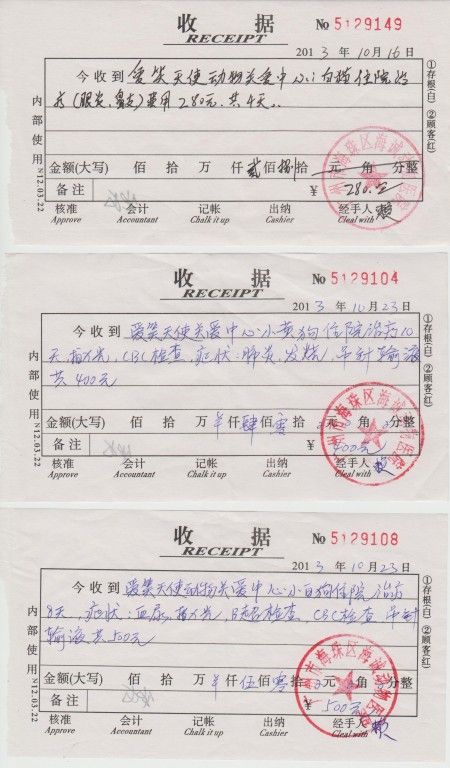 收据
RECEIPT
No 5129149
2013年10月16日
今收到 爱笑天使动物关爱中心:白猫住院治
疗(眼炎、鼻支)费用280元.共4天.
金额(大写) 佰 拾 万 仟 贰 佰 捌 拾 元 角 分整
备注
¥ 280.元
核准 会计 记帐 出纳 经手人 赖
Approve Accountant Chalk it up Cashier Cleal with
内部使用 N12.03.22
①存根(白) ②顾客(红)
收据
RECEIPT
No 5129104
2013年10月23日
今收到 爱笑天使关爱中心小黄狗住院治疗10
天, CBC检查,症状:肺炎,发烧, 输液
共400元
金额(大写) 佰 拾 万 仟 肆 佰 零 拾 元 角 分整
备注
¥ 400元
核准 会计 记帐 出纳 经手人 赖
Approve Accountant Chalk it up Cashier Cleal with
内部使用 N12.03.22
①存根(白) ②顾客(红)
收据
RECEIPT
No 5129108
2013年10月23日
今收到 爱笑天使动物关爱中心小白狗住院治疗
8天,症状:血尿, 检查 CBC检查
输液共500元
金额(大写) 佰 拾 万 仟 伍 佰 零 拾 元 角 分整
备注
¥ 500元
核准 会计 记帐 出纳 经手人 赖
Approve Accountant Chalk it up Cashier Cleal with
内部使用 N12.03.22
①存根(白) ②顾客(红)